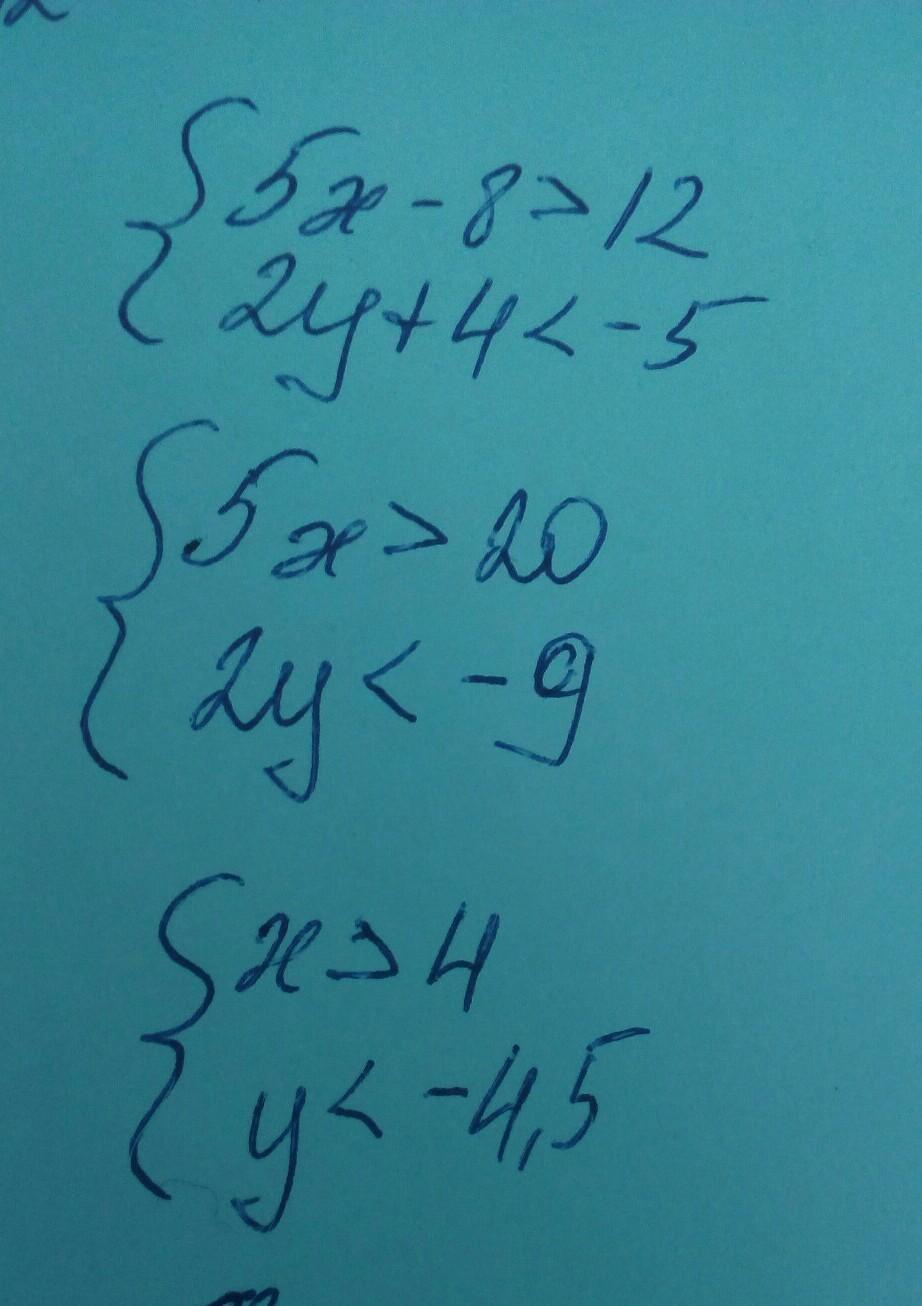 5x - 8 > 12
2y + 4 < -5
5x > 20
2y < -9
x > 4
y < -4,5